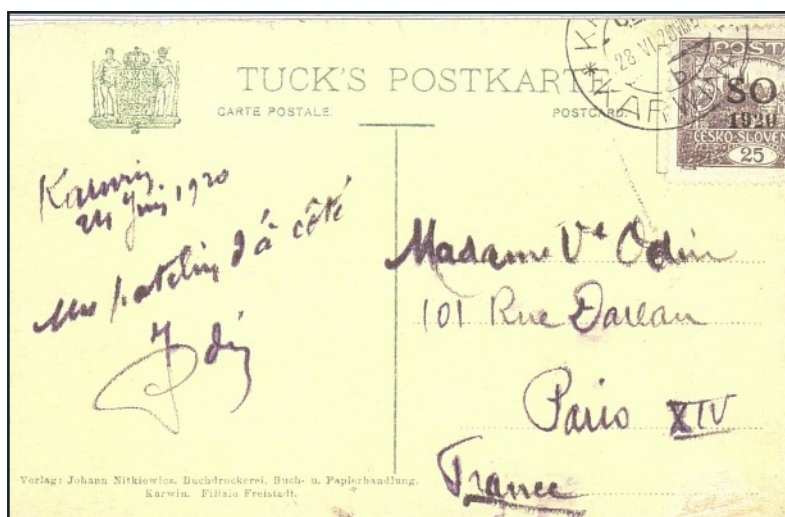 TUCK'S POSTKARTE
CARTE POSTALE.
POSTCARD.
* KARWIN
28 VI 20
b
POSTA
SO
1920
ČESKO-SLOVEN
25
Karwin
24 Juin 1920
patelin d'à côté
Odin
Madame Ve Odin
101 Rue Dareau
Paris XIV
France
Verlag: Johann Nitkiewicz, Buchdruckerei, Buch- u. Papierhandlung,
Karwin. Filiale Freistadt.